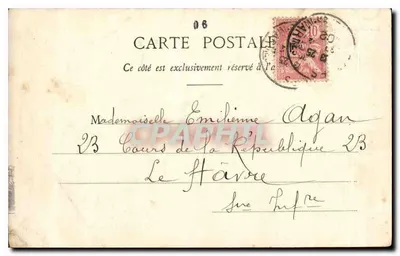 06
CARTE POSTALE
Ce côté est exclusivement réservé à l'a
Mademoiselle Emilienne Agan
23 Cours de la République 23
Le Hâvre
Sne Infre
CPAPHIL
10